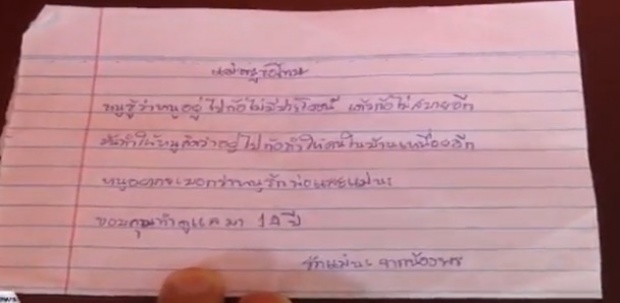 แม่หนูขอโทษ
หนูรู้ว่าหนูอยู่ไปก้อไม่มี แล้วก้อไม่สบายอีก
มันทำให้หนูคิดว่าอยู่ไปก้อทำให้คนในบ้านเหนื่อยอีก
หนูอยากจะบอกว่าหนูรักพ่อและแม่นะ
ขอบคุณที่ดูแลมา 14 ปี
รักแม่นะ จากน้องพร